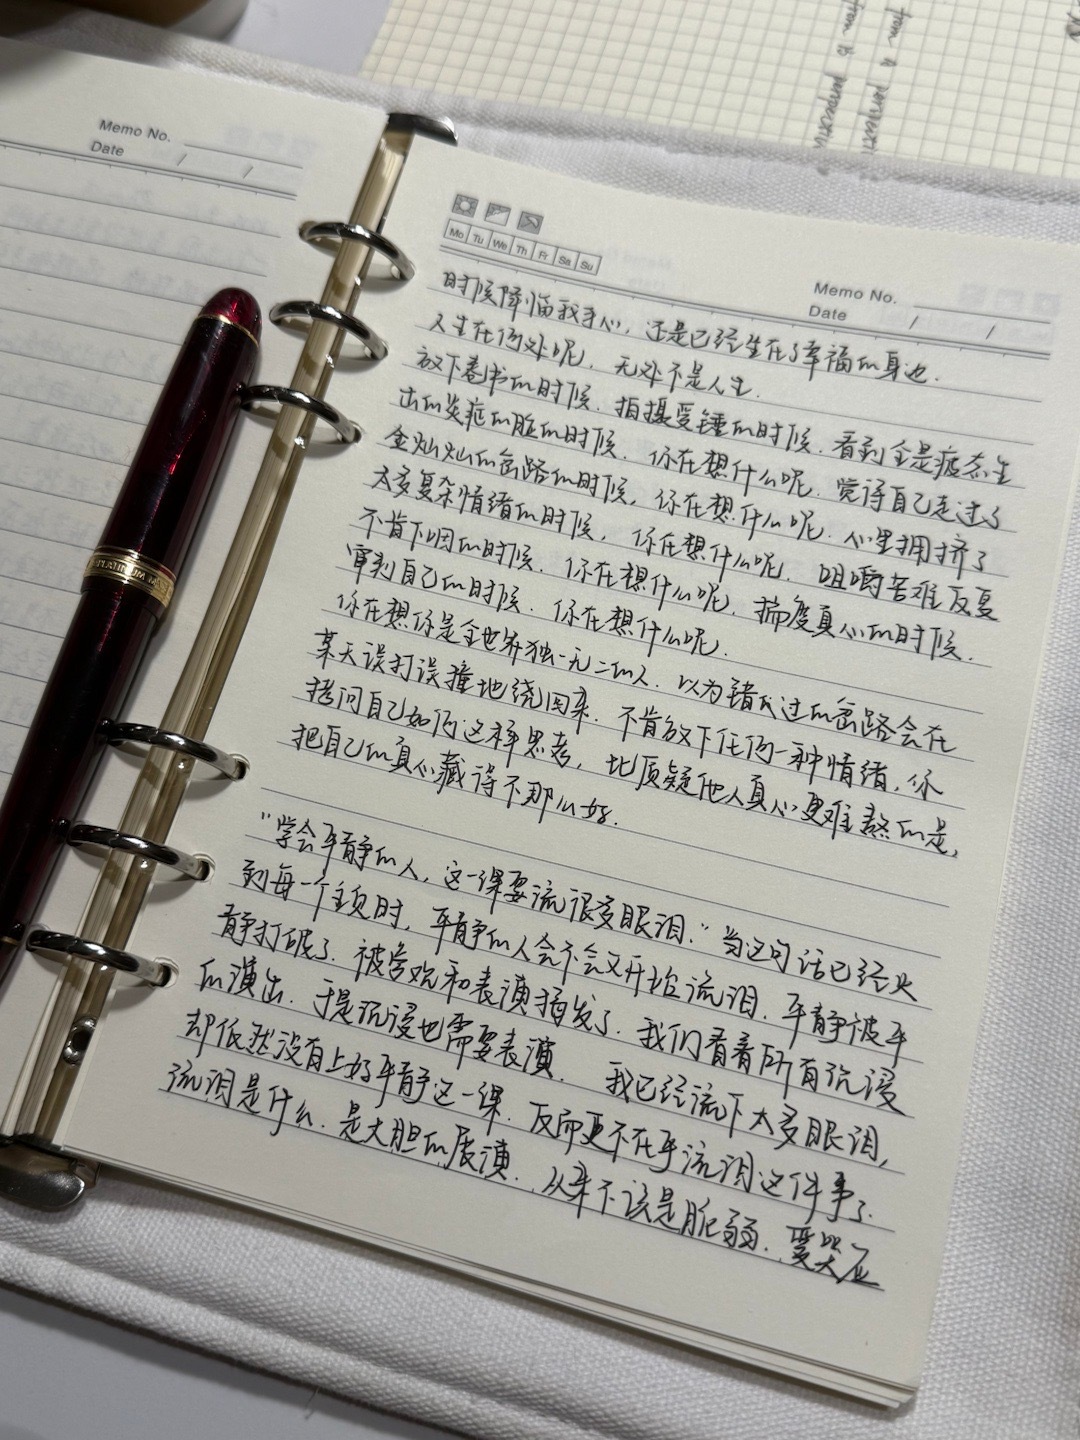 Memo No.
Date / /
from a perspecti
from is perspectiv
Mo Tu We Th Fr Sa Su
Memo No.
Date / /
时候降临我手心，还是已经生在了幸福的身边.
人生在何处呢. 无处不是人生.
放下卷书的时候. 拍摄受锤的时候. 看到全是疲态生
出的炎症的脸的时候. 你在想什么呢. 觉得自己走过了
金灿灿的岔路的时候, 你在想什么呢. 心里拥挤了
太多复杂情绪的时候, 你在想什么呢. 咀嚼苦难反复
不肯下咽的时候. 你在想什么呢. 揣度真心的时候.
审判自己的时候. 你在想什么呢.
你在想你是全世界独一无二的人. 以为错过的岔路会在
某天误打误撞地绕回来. 不肯放下任何一种情绪. 你
拷问自己如何这样思考, 比质疑他人真心更难熬的是,
把自己的真心藏得不那么好.
“学会平静的人, 这一课要流很多眼泪.” 当这句话已经火
到每一个主页时, 平静的人会不会又开始流泪. 平静被平
静打破了. 被喜欢和表演揭发了. 我们看着所有沉浸
的演出. 于是沉浸也需要表演. 我已经流下太多眼泪,
却依然没有上好平静这一课. 反而更不在乎流泪这件事了.
流泪是什么. 是大胆的展演. 从来不该是脆弱. 爱哭应
PLATINUM